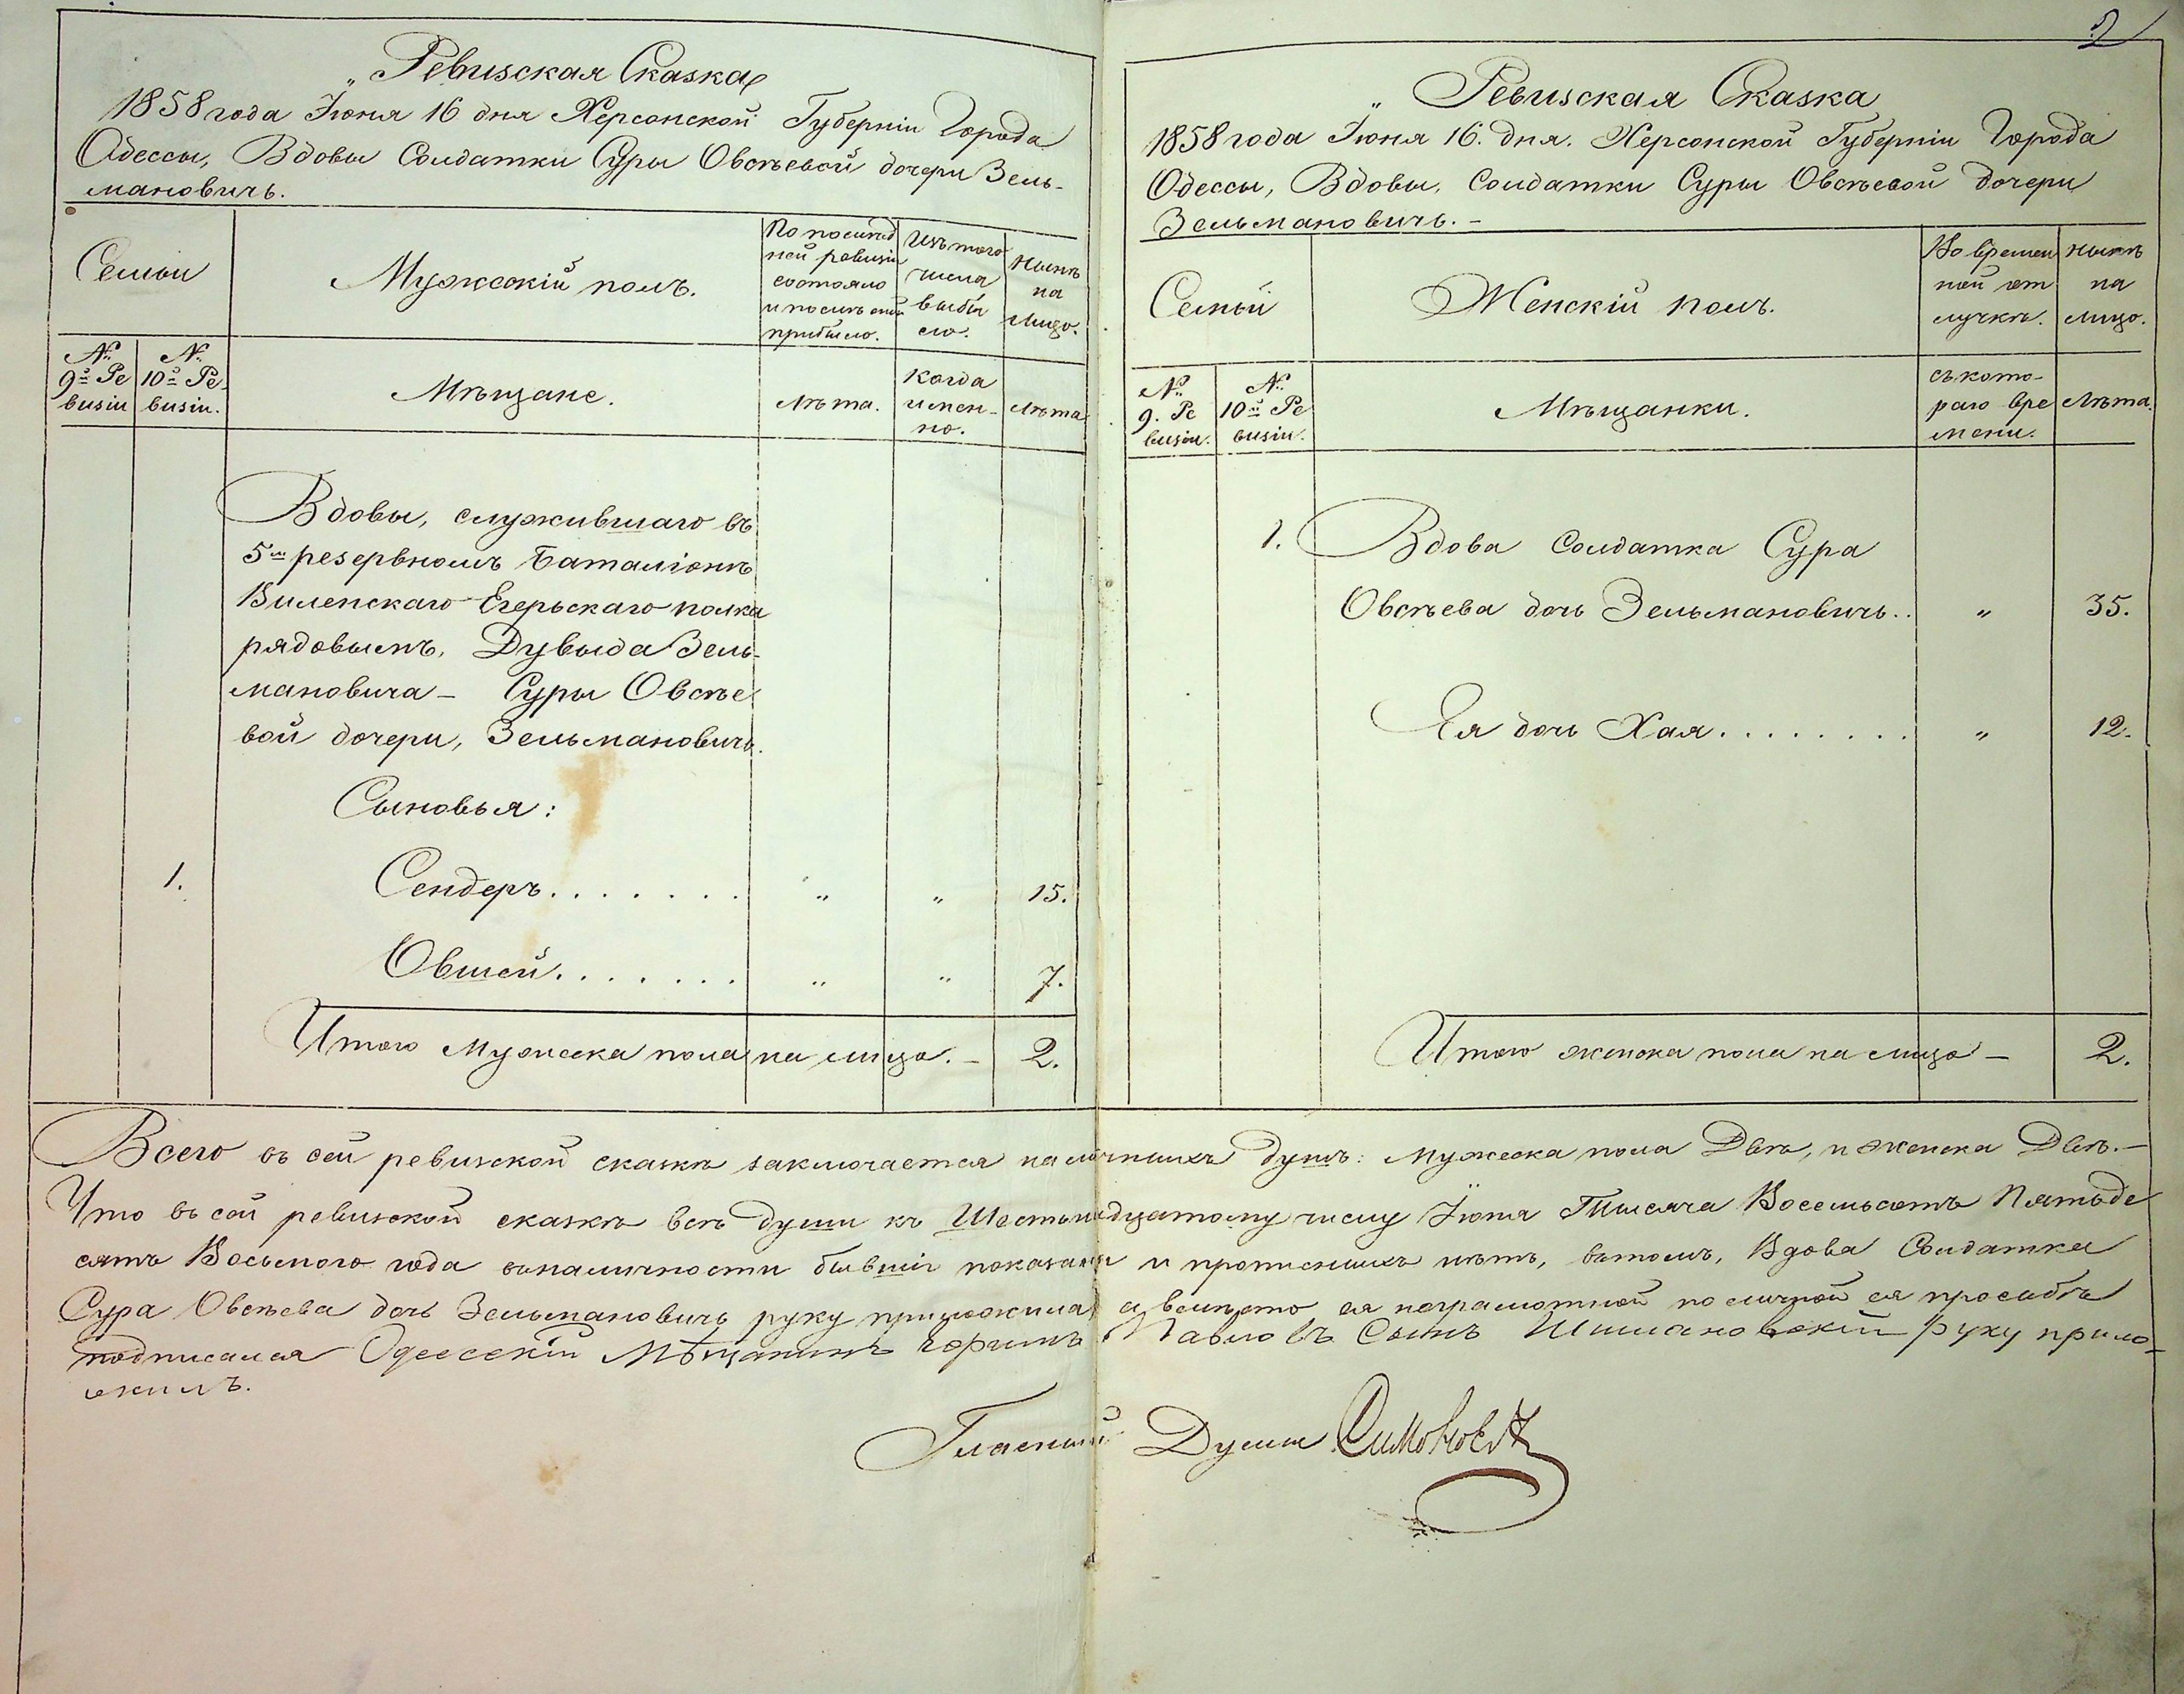 2
„Ревизская Сказка
1858 года Іюня 16 дня Херсонской Губерніи Города
Одессы, Вдовы Солдатки Суры Овсѣевой дочери Зель-
мановичъ.
Семьи
Мужескій полъ.
По послѣд
ней ревизіи
состояло
и послѣ оной
прибыло.
Изъ того
числа
выбы
ло.
Нынѣ
на
лицо.
№
9й Ре
визіи
№
10й Ре
визіи.
Мѣщане.
Лѣта.
Когда
имен-
но.
Лѣта
Вдовы, служившаго въ
5мъ резервномъ баталіонѣ
Виленскаго Егерьскаго полка
рядовымъ, Дувыда Зель-
мановича - Суры Овсѣе
вой дочери, Зельмановичъ.
Сыновья:
1. Сендеръ........ „ „ 15.
Овшей....... „ „ 7.
Итого Мужеска пола на лицо. - 2.
„Ревизская Сказка
1858 года Іюня 16. дня. Херсонской Губерніи Города
Одессы, Вдовы, Солдатки Суры Овсѣевой дочери
Зельмановичъ. -
Семьи
Женскій полъ.
Во времен
ной от
лучкѣ.
Нынѣ
на
лицо.
№
9. Ре
визіи.
№
10й Ре
визіи.
Мѣщанки.
съ кото-
раго вре
мени.
Лѣта.
1. Вдова Солдатка Сура
Овсѣева дочь Зельмановичъ.. „ 35.
Ея дочь Хая......... „ 12.
Итого женска пола на лицо - 2.
Всего въ сей ревизской сказкѣ заключается наличныхъ душъ: мужеска пола Двѣ, и женска Двѣ. -
Что въ сей ревизской сказкѣ всѣ души къ Шестьнадцатому числу Іюня Тысяча Восемьсотъ Пятьде
сятъ Восьмого года въ наличности бывшіе показаны и прописныхъ нѣтъ, въ томъ, Вдова Солдатка
Сура Овсѣева дочь Зельмановичъ руку приложила, а вмѣсто ея неграмотной по личной ея просьбѣ
подписался Одесскій Мѣщанинъ Павловъ Сынъ руку прило-
жилъ.
Гласный Думы Симоновъ